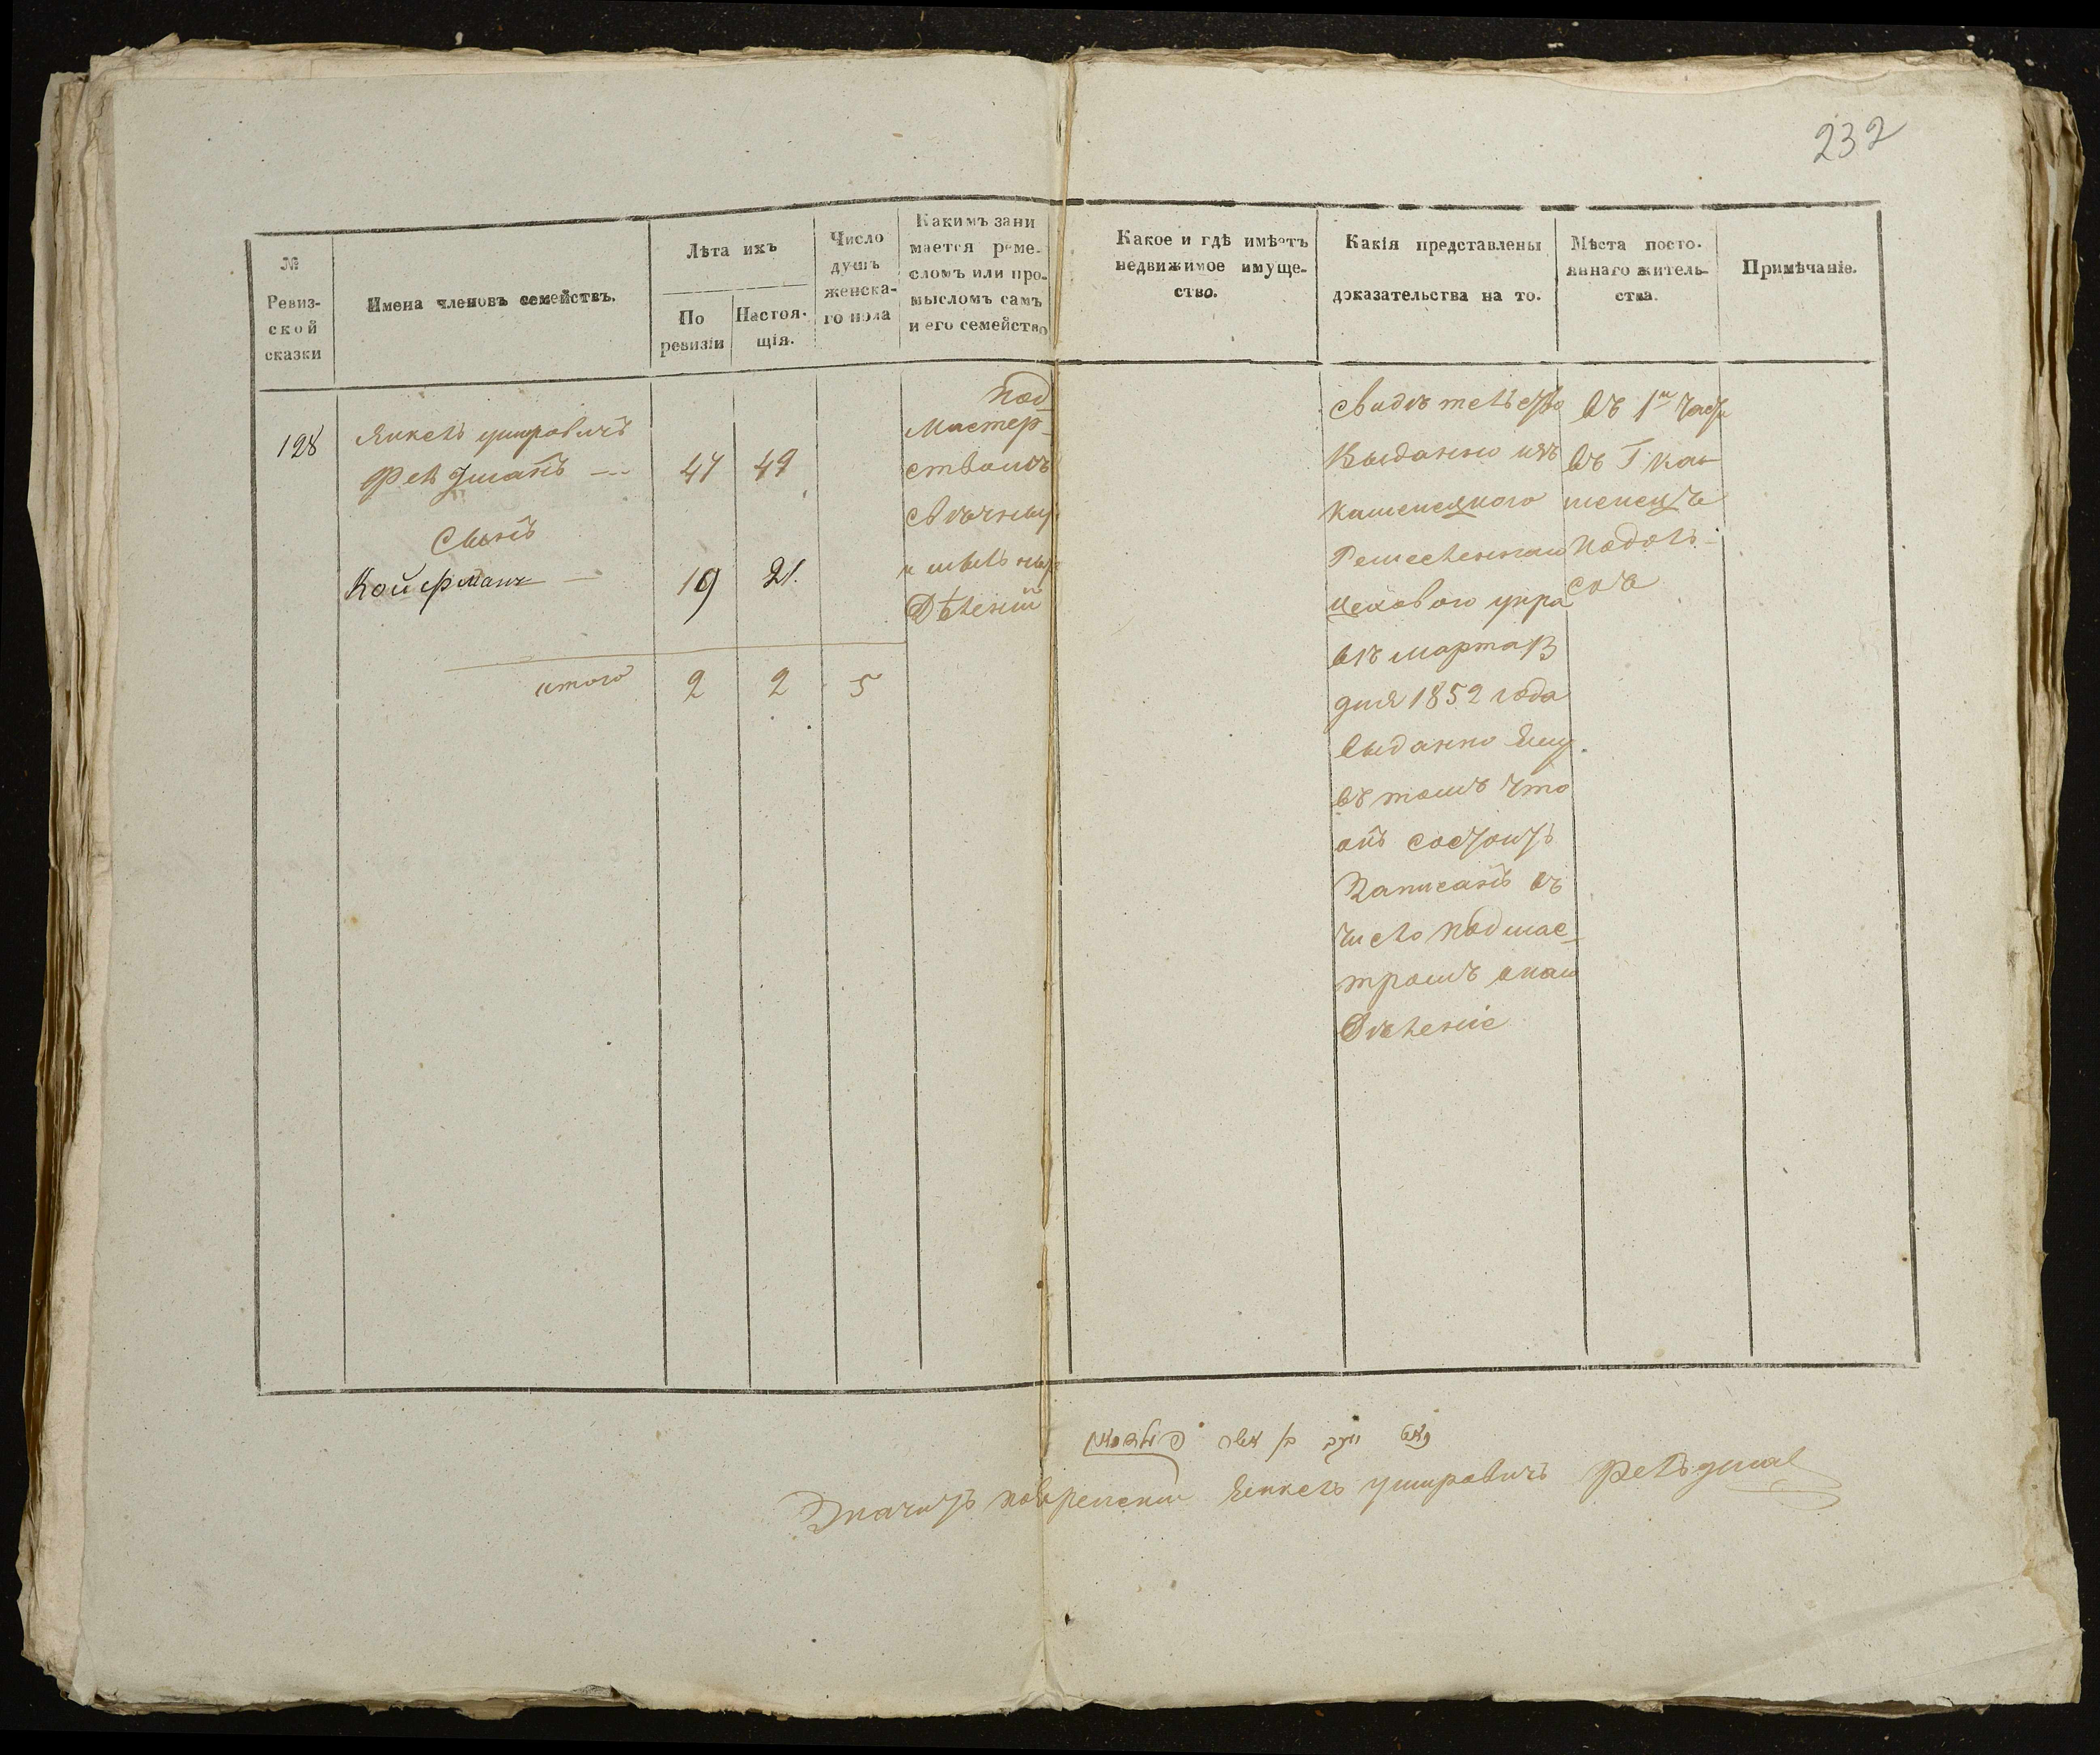 232
№
Ревиз-
ской
сказки
Имена членовъ семействъ.
Лѣта ихъ
По
ревизіи
Настоя-
щія.
Число
душъ
женска-
го пола
Какимъ зани
мается реме-
сломъ или про-
мысломъ самъ
и его семейство
Какое и гдѣ имѣетъ
недвижимое имуще-
ство.
Какія представлены
доказательства на то.
Мѣста посто-
яннаго житель-
ства.
Примѣчаніе.
128
Янкель Ушировичъ
Фельдманъ
47 49
Сынъ
Койфманъ
19 21.
итого 2 2 5
под
мастер-
ствомъ
свѣчныхъ
и мыльныхъ
дѣленій
свидѣтельство
выданно изъ
каменецкого
Ремесленнаго
цехового упра
въ марта 13
дня 1852 года
выданно ему
въ томъ что
онъ состоитъ
записанъ въ
число подмас-
тромъ
въ 1й части
въ Г Каменецъ
подоль-
скѣ
Значитъ поеврейски Янкель Ушировичъ Фельдма